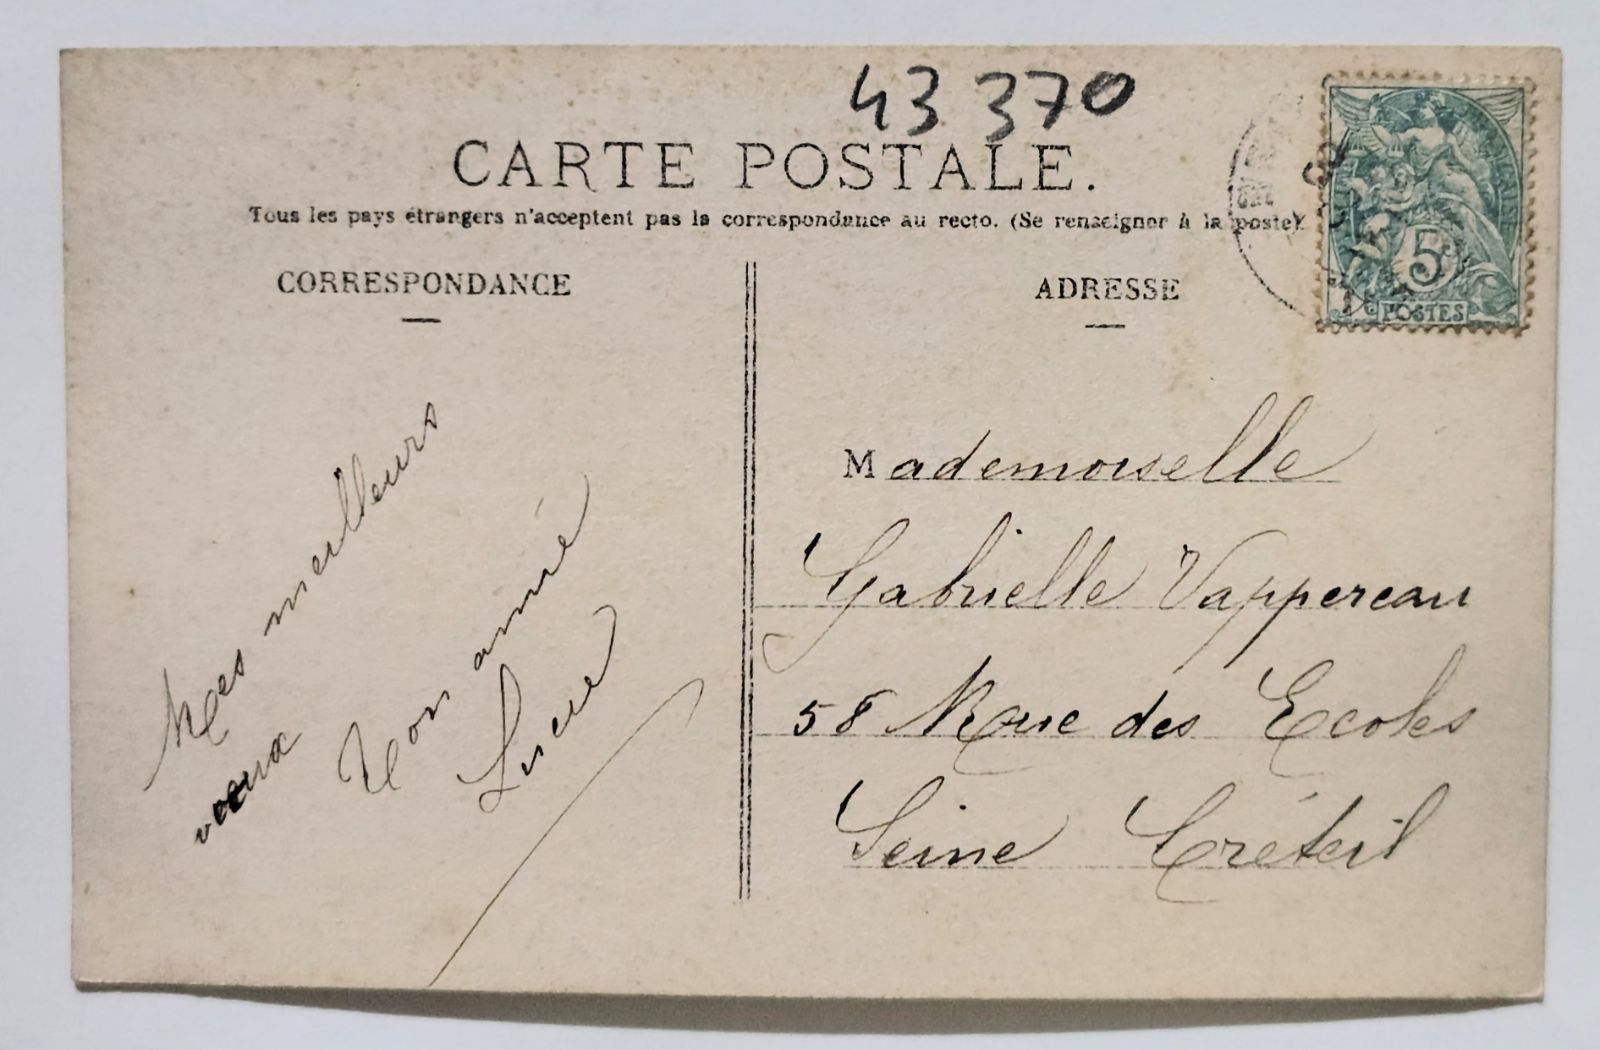 43 370
CARTE POSTALE.
Tous les pays étrangers n'acceptent pas la correspondance au recto. (Se renseigner à la poste).
CORRESPONDANCE
Mes meilleurs
vœux
Ton amie
Lucie
ADRESSE
5
POSTES
Mademoiselle
Gabrielle Vappereau
58 Rue des Ecoles
Seine Créteil